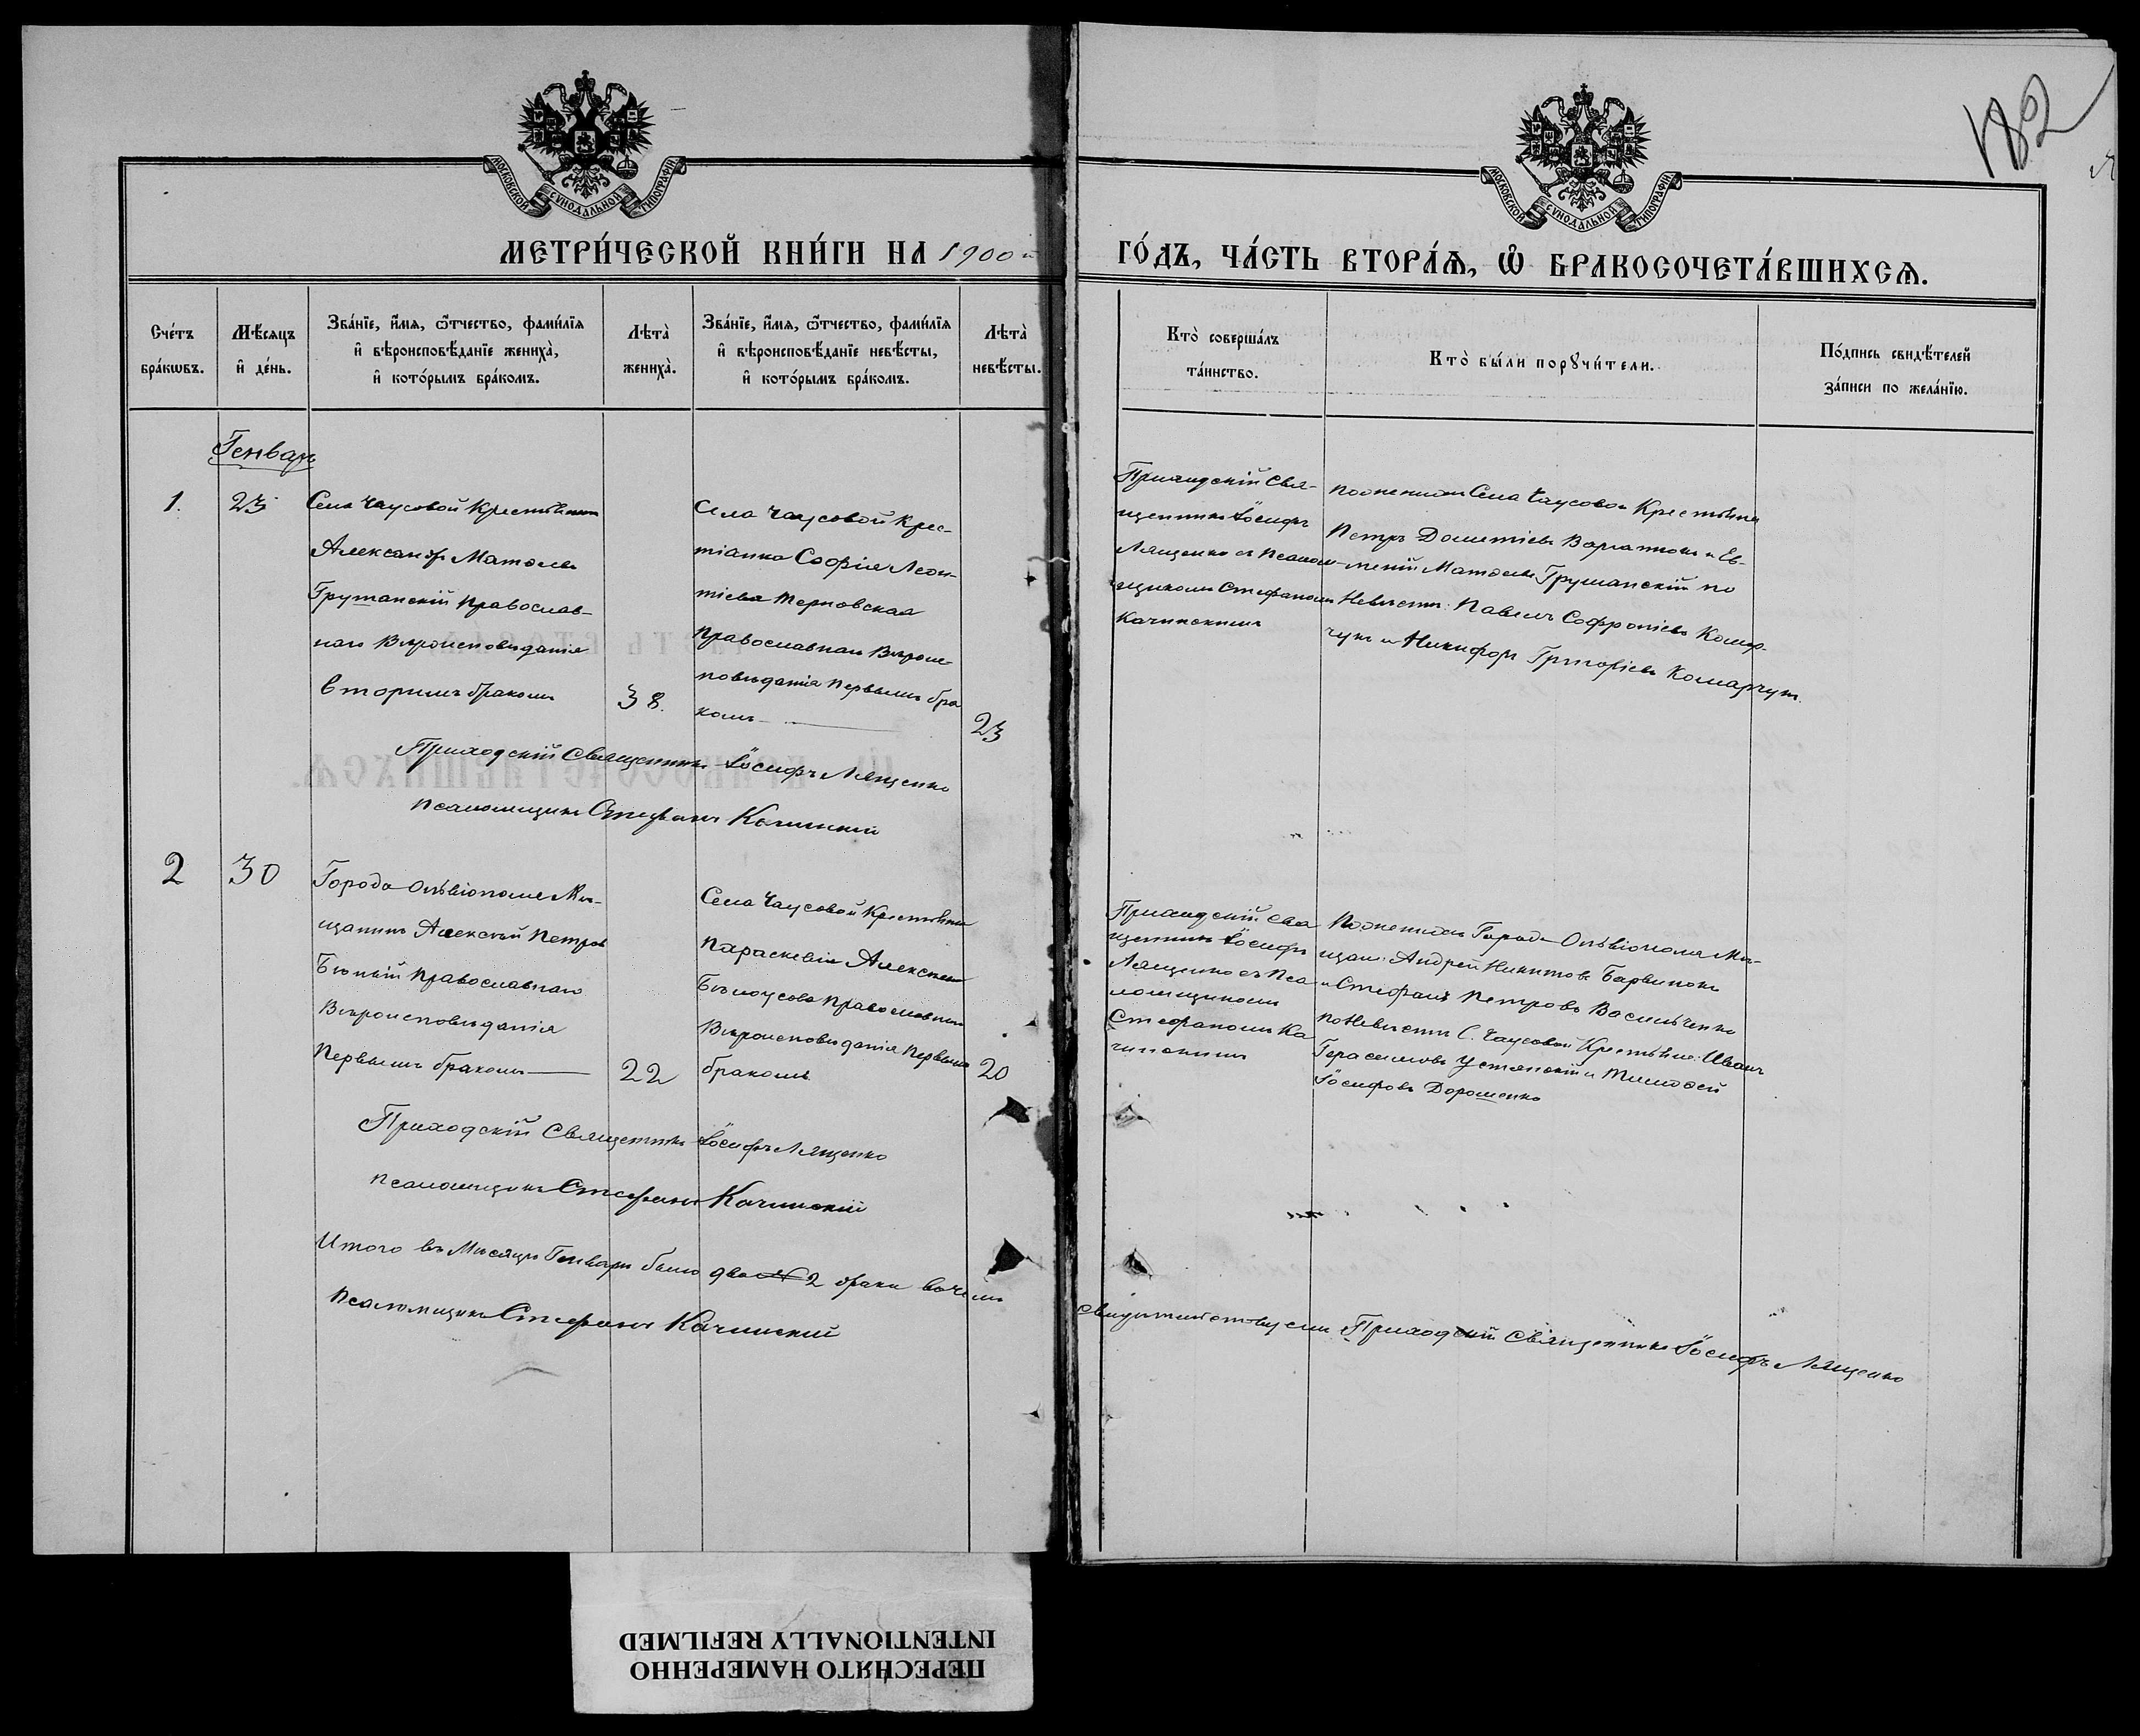 182
МОСКОВСКОЙ СѴНОДАЛЬНОЙ ТИПОГРАФІИ
МОСКОВСКОЙ СѴНОДАЛЬНОЙ ТИПОГРАФІИ
МЕТРИ́ЧЕСКОЙ КНИ́ГИ НА 1900й
ГО́ДЪ, ЧА́СТЬ ВТОРА́Ѧ, Ѽ БРАКОСОЧЕТА́ВШИХСѦ.
Сче́тъ
бра́кѡвъ.
Мѣ́сяцъ
и҆ де́нь.
Зва́нїе, и҆́мѧ, ѻ҆́тчество, фамі́лїѧ
и҆ вѣроисповѣ́данїе жениха̀,
и҆ кото́рымъ бра́комъ.
Лѣта̀
жениха̀.
Зва́нїе, и҆́мѧ, ѻ҆́тчество, фамі́лїѧ
и҆ вѣроисповѣ́данїе невѣ́сты,
и҆ кото́рымъ бра́комъ.
Лѣта̀
невѣ́сты.
Кто̀ соверша́лъ
та́инство.
Кто̀ бы́ли порꙋчи́тели.
По́дпись свидѣ́телей
за́писи по жела́нїю.
Генваръ
1.
23
Села Чаусовой Крестьянинъ
Александръ Матѳеевъ
Грушанскій Православ-
наго Вѣроисповѣданія
вторимъ бракомъ
38.
Села Чаусовой Крес-
тіанка Софія Леон-
тіева Терновская
Православнаго Вѣроис-
повѣданія Первымъ бра
комъ
23
Приходскій Свя-
щенникъ Іосифъ
Лященко съ Псалом-
щикомъ Стефаномъ
Качинскимъ
По женихѣ Села Чаусовой Крестьяни
Петръ Дометіевъ и Ев-
меній Матѳеевъ Грушанскій по
Невѣстѣ: Павелъ Софроніевъ Комар-
чукъ и Никифоръ Григоріевъ Комарчукъ.
Приходскій Священникъ Іосифъ Лященко
Псаломщикъ Стефанъ Качинскій
2
30
Города Ольвіополя Мѣ-
щанинъ Алексѣй Петровъ
Православнаго
Вѣроисповѣданія
Первымъ бракомъ
22
Села Чаусовой Крестьянка
Параскевія Алексѣева
Бѣлоусова Православнаго
Вѣроисповѣданія Первымъ
бракомъ
20
Приходскій Свя
щенникъ Іосифъ
Лященко съ Пса
ломщикомъ
Стефаномъ Ка
чинскимъ
По женихѣ Города Ольвіополя Мѣ-
щан: Андрей Никитовъ Барвинокъ
и Стефанъ Петровъ Васильченко
по Невѣстѣ С. Чаусовой Крестьяне: Иванъ
Герасимовъ Устянскій и Тимоѳей
Іосифовъ Дорошенко
Приходскій Священникъ Іосифъ Лященко
Псаломщикъ Стефанъ Качинскій
Итого въ Мѣсяцѣ Генварѣ было два 2 брака въ чемъ
свидѣтельствуемъ Приходскій Священникъ Іосифъ Лященко
Псаломщикъ Стефанъ Качинскій
ПЕРЕСНЯТО НАМЕРЕННО
INTENTIONALLY REFILMED